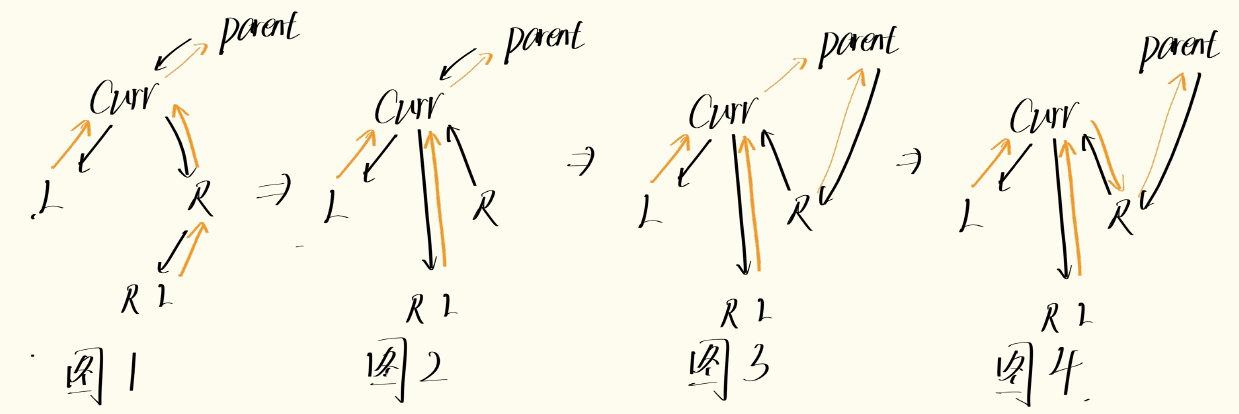 parent
Curr
L
R
R L
图1
parent
Curr
L
R
R L
图2
parent
Curr
L
R
R L
图3
parent
Curr
L
R
R L
图4